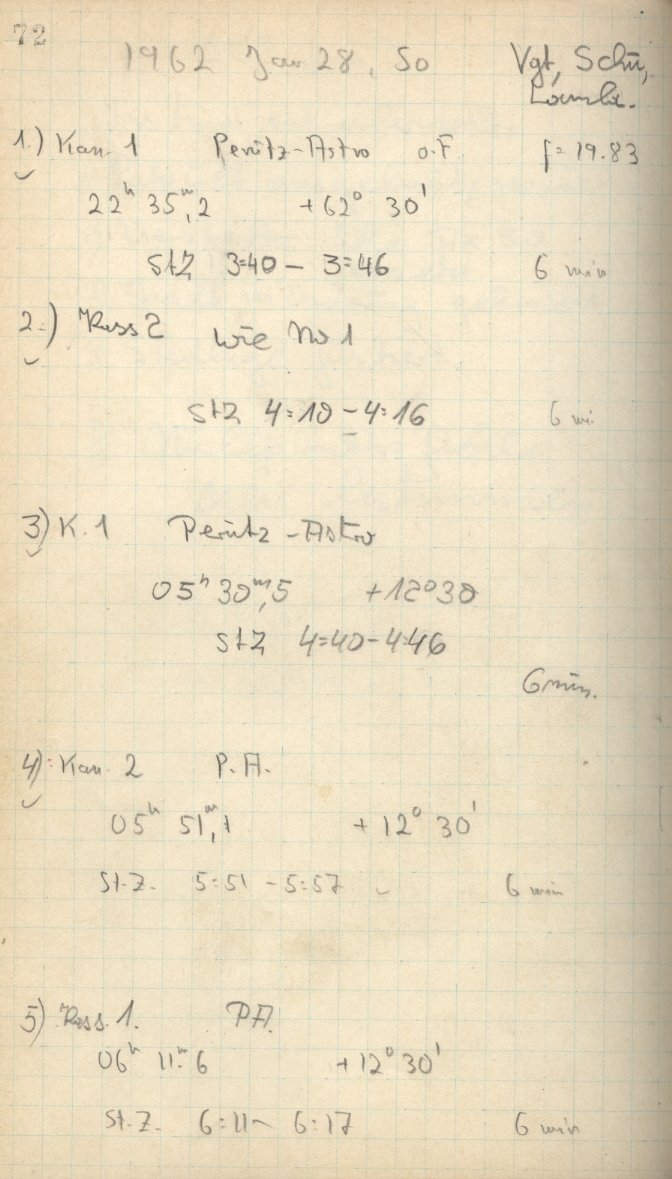 72
1962 Jan 28, So Vgt, Schü,
1.) Kas. 1 Perutz-Astro o.F. f = 19.83
22ʰ 35ᵐ,2 +62° 30'
StZ 3:40 – 3:46 6 min
2.) Kass 2 wie No 1
StZ 4:10 – 4:16 6 mi
3) K. 1 Perutz-Astro
05ʰ 30ᵐ,5 +12°30
StZ 4:40–4:46
6 min.
4) Kas. 2 P.A.
05ʰ 51ᵐ,1 +12° 30'
St.Z. 5:51 – 5:57 6 min
5) Kass. 1. P.A.
06ʰ 11ᵐ.6 +12° 30'
St.Z. 6:11 – 6:17 6 min